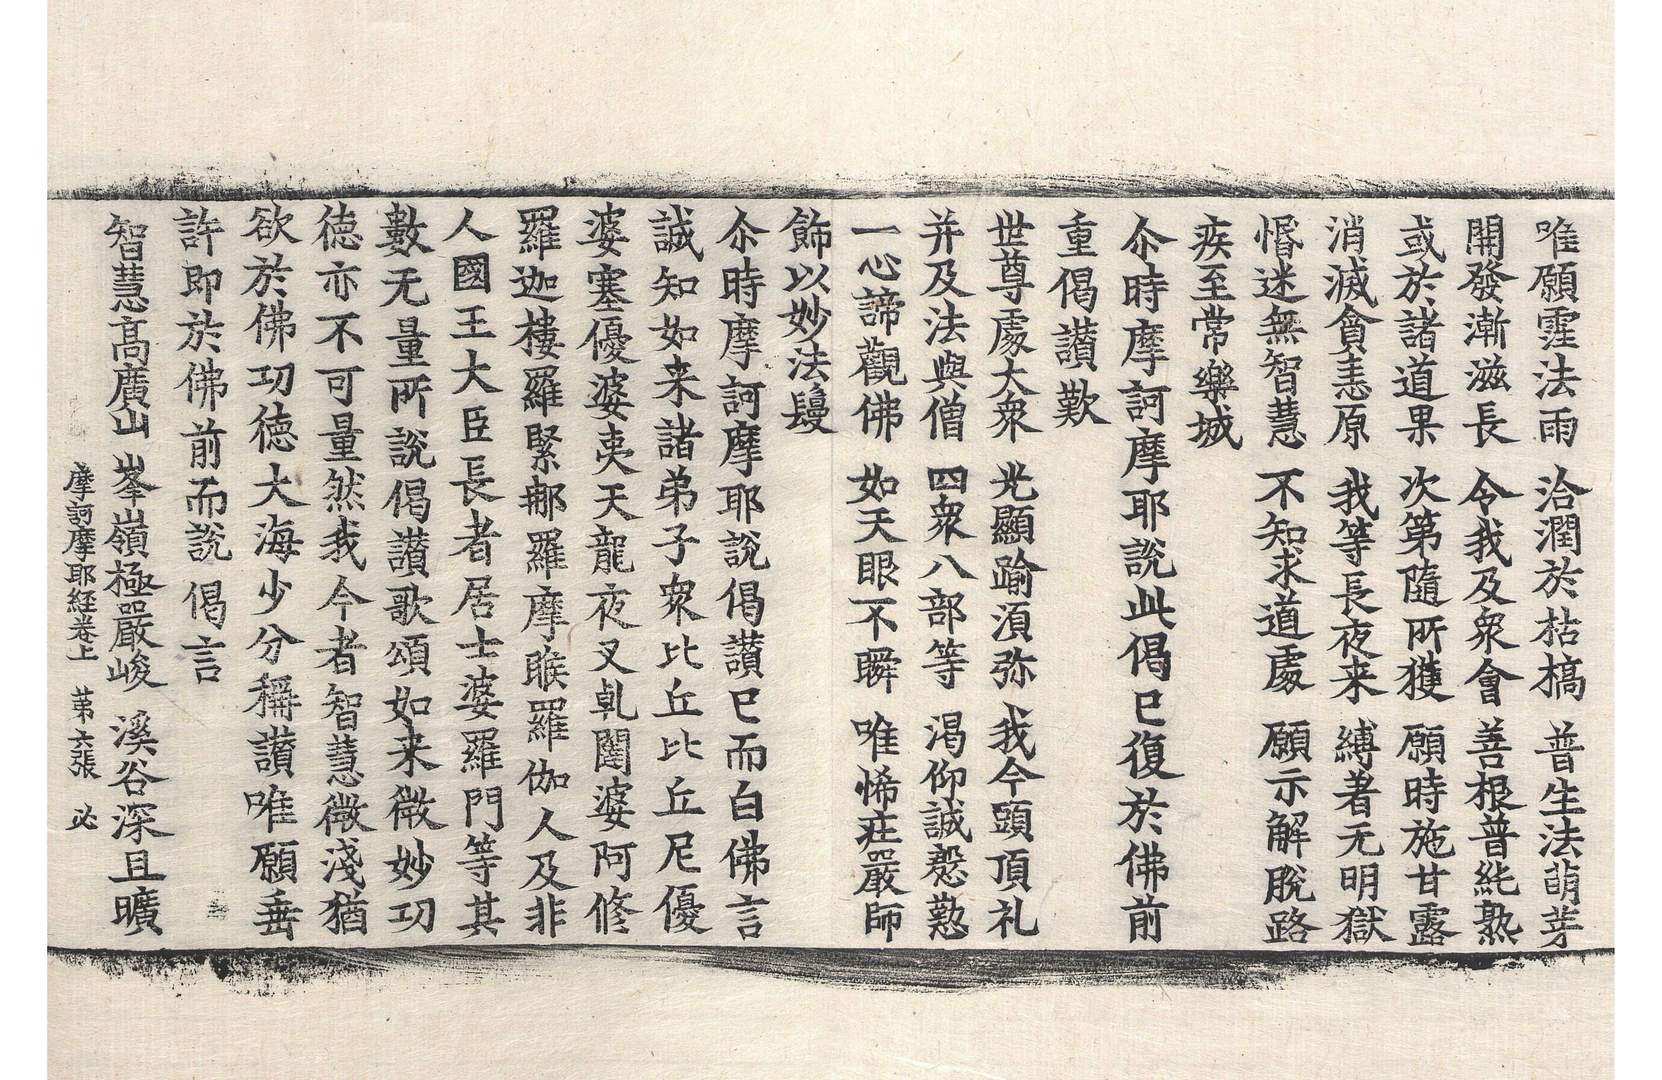 唯願霔法雨　洽潤於枯槁　普生法萌芽
開發漸滋長　令我及衆會　善根普純熟
或於諸道果　次第隨所獲　願時施甘露
消滅貪恚原　我等長夜来　縛著无明獄
惛迷無智慧　不知求道處　願示解脫路
疾至常樂城
尒時摩訶摩耶說此偈已復於佛前
重偈讃歎
世尊處大衆　光顯踰湏弥　我今頭頂礼
并及法與僧　四衆八部等　渴仰誠慇懃
一心諦觀佛　如天眼不瞬　唯悕莊嚴師
飾以妙法鬘
尒時摩訶摩耶說偈讃已而白佛言
誠知如来諸弟子衆比丘比丘尼優
婆塞優婆夷天龍夜叉乹闥婆阿修
羅迦樓羅緊那羅摩睺羅伽人及非
人國王大臣長者居士婆羅門等其
數无量所說偈讃歌頌如来微妙功
徳亦不可量然我今者智慧微淺猶
欲於佛功徳大海少分稱讃唯願垂
許即於佛前而說偈言
智慧髙廣山　峯嶺極嚴峻　溪谷深且曠
摩訶摩耶経卷上　苐六張　必